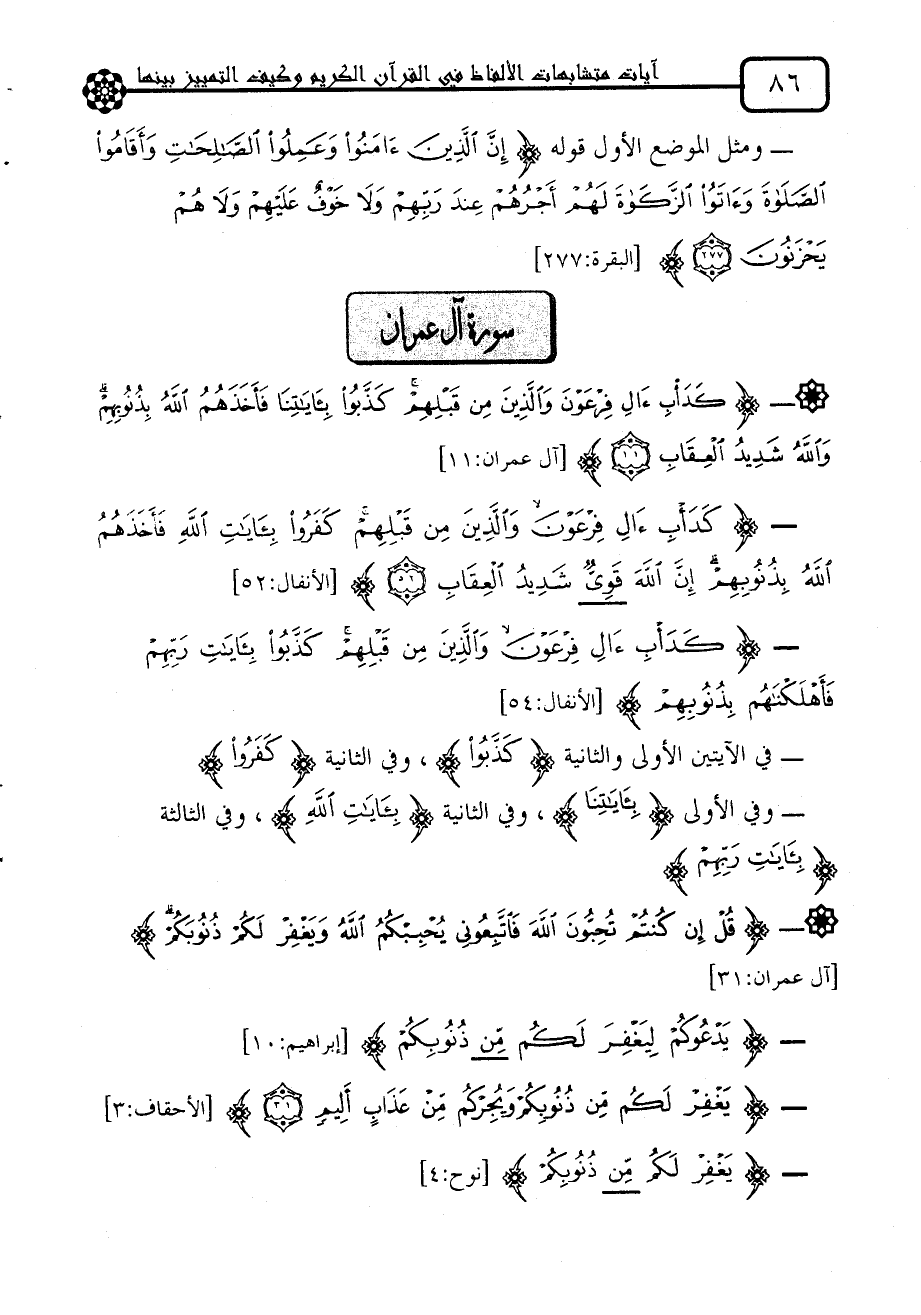 ٨٦
آيات متشابهات الألفاظ في القرآن الكريم وكيف التمييز بينها
ــ ومثل الموضع الأول قوله ﴿ إِنَّ الَّذِينَ ءَامَنُواْ وَعَمِلُواْ الصَّـٰلِحَـٰتِ وَأَقَامُواْ
الصَّلَوٰةَ وَءَاتَوُاْ الزَّكَوٰةَ لَهُمْ أَجْرُهُمْ عِندَ رَبِّهِمْ وَلَا خَوْفٌ عَلَيْهِمْ وَلَا هُمْ
يَحْزَنُونَ ٢٧٧ ﴾ [البقرة:٢٧٧]
سورة آل عمران
ــ ﴿ كَدَأْبِ ءَالِ فِرْعَوْنَ وَالَّذِينَ مِن قَبْلِهِمْ ۚ كَذَّبُواْ بِـَٔايَـٰتِنَا فَأَخَذَهُمُ اللَّهُ بِذُنُوبِهِمْ ۗ
وَاللَّهُ شَدِيدُ الْعِقَابِ ١١ ﴾ [آل عمران:١١]
ــ ﴿ كَدَأْبِ ءَالِ فِرْعَوْنَ ۙ وَالَّذِينَ مِن قَبْلِهِمْ ۚ كَفَرُواْ بِـَٔايَـٰتِ اللَّهِ فَأَخَذَهُمُ
اللَّهُ بِذُنُوبِهِمْ ۗ إِنَّ اللَّهَ قَوِىٌّ شَدِيدُ الْعِقَابِ ٥٢ ﴾ [الأنفال:٥٢]
ــ ﴿ كَدَأْبِ ءَالِ فِرْعَوْنَ ۙ وَالَّذِينَ مِن قَبْلِهِمْ ۚ كَذَّبُواْ بِـَٔايَـٰتِ رَبِّهِمْ
فَأَهْلَكْنَـٰهُم بِذُنُوبِهِمْ ﴾ [الأنفال:٥٤]
ــ في الآيتين الأولى والثانية ﴿ كَذَّبُواْ ﴾ ، وفي الثانية ﴿ كَفَرُواْ ﴾
ــ وفي الأولى ﴿ بِـَٔايَـٰتِنَا ﴾ ، وفي الثانية ﴿ بِـَٔايَـٰتِ اللَّهِ ﴾ ، وفي الثالثة
﴿ بِـَٔايَـٰتِ رَبِّهِمْ ﴾
ــ ﴿ قُلْ إِن كُنتُمْ تُحِبُّونَ اللَّهَ فَاتَّبِعُونِى يُحْبِبْكُمُ اللَّهُ وَيَغْفِرْ لَكُمْ ذُنُوبَكُمْ ۗ ﴾
[آل عمران:٣١]
ــ ﴿ يَدْعُوكُمْ لِيَغْفِرَ لَكُم مِّن ذُنُوبِكُمْ ﴾ [إبراهيم:١٠]
ــ ﴿ يَغْفِرْ لَكُم مِّن ذُنُوبِكُمْ وَيُجِرْكُم مِّنْ عَذَابٍ أَلِيمٍ ٣١ ﴾ [الأحقاف:٣]
ــ ﴿ يَغْفِرْ لَكُم مِّن ذُنُوبِكُمْ ﴾ [نوح:٤]